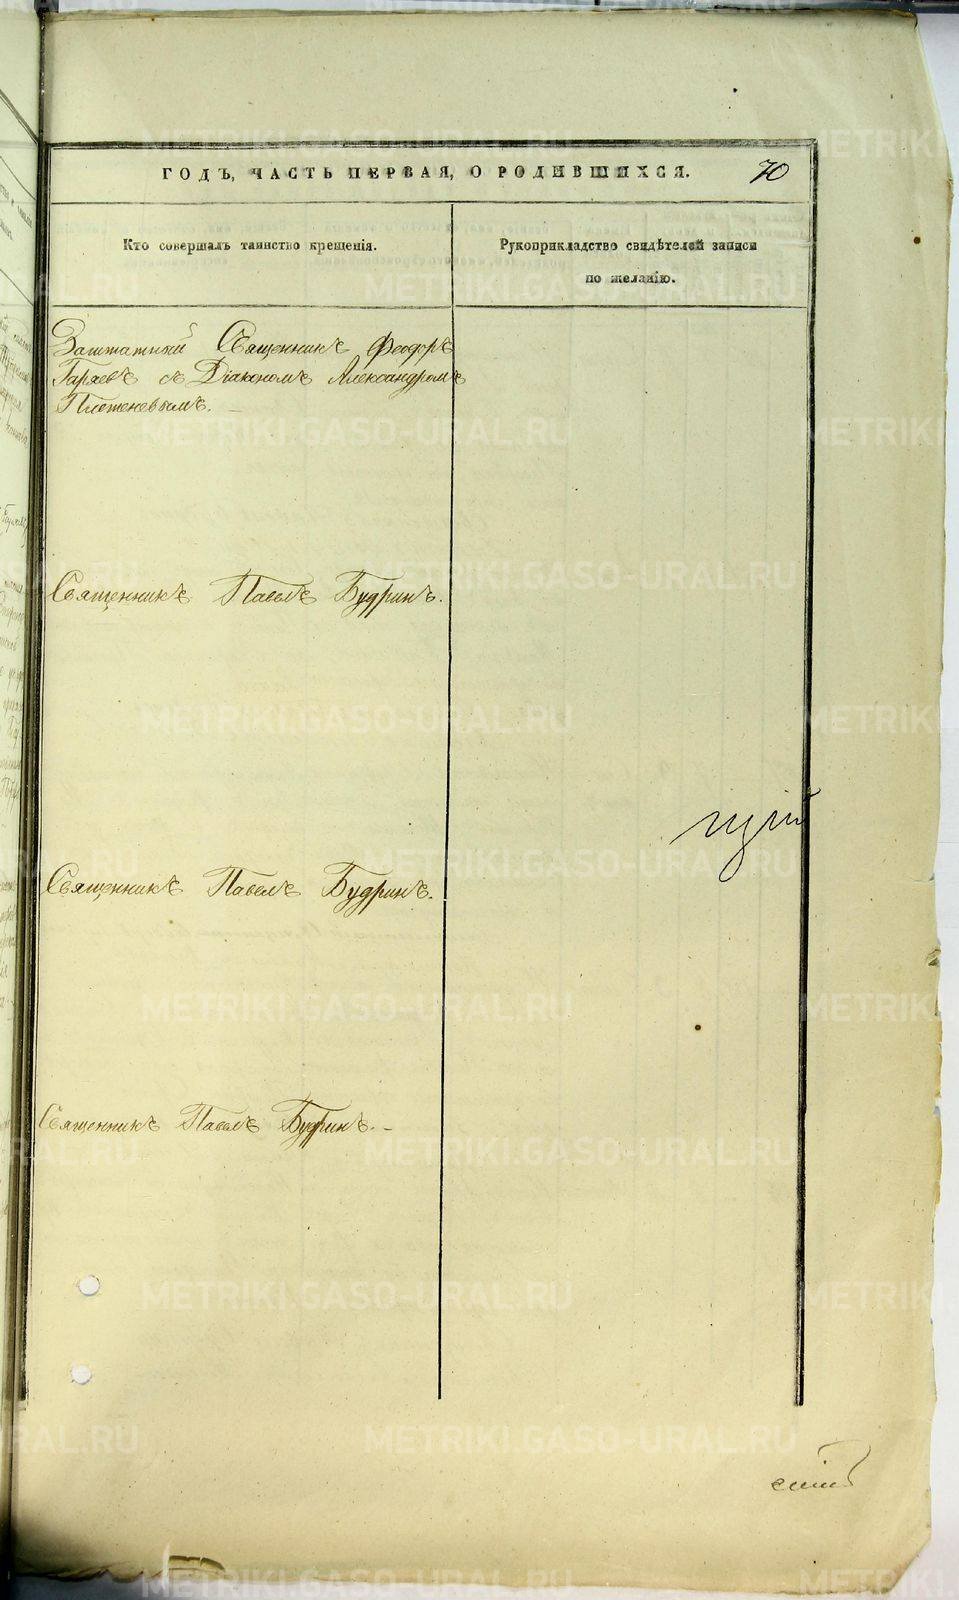 ГОДЪ, ЧАСТЬ ПЕРВАЯ, О РОДИВШИХСЯ. 70
Кто совершалъ таинство крещенія.
Рукоприкладство свидѣтелей записи
по желанію.
Заштатный Священникъ Феодоръ
Гаряевъ съ Діакономъ Александромъ
Плетеневымъ.
Священникъ Павелъ Будринъ.
Священникъ Павелъ Будринъ.
Священникъ Павелъ Будринъ.
METRIKI.GASO-URAL.RU